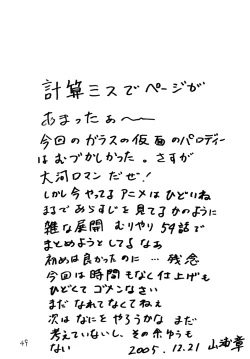 計算ミスでページが
あまったぁ〜
今回のガラスの仮面のパロディー
はむづかしかった。さすが
大河ロマンだぜ!
しかし今やってるアニメはひどいね
まるであらすじを見てるかのように
雑な展開 むりやり54話で
まとめようとしてるなぁ
初めは良かったのに… 残念
今回は時間もなく仕上げも
ひどくてゴメンなさい
まだなれてなくてねぇ
次はなにをやろうかな まだ
考えていないし、その余ゆうも
ない 2005.12.21 山浦章
49